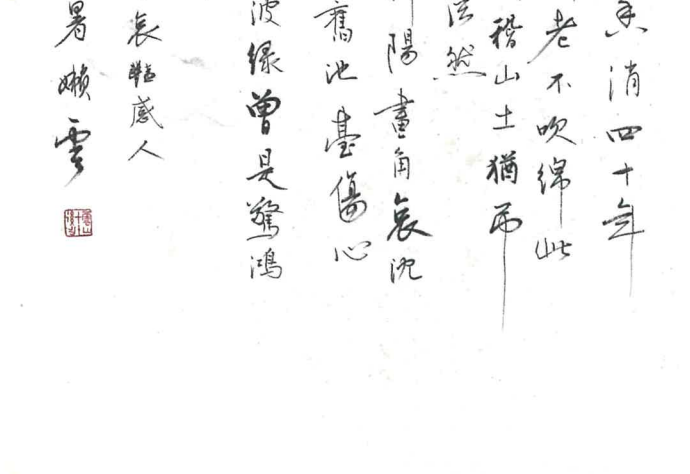 香消四十年
老不吹綿此
稽山土猶吊
泫然
陽畫角哀沈
舊池臺傷心
波綠曾是驚鴻
哀豔感人
暑嬾雲